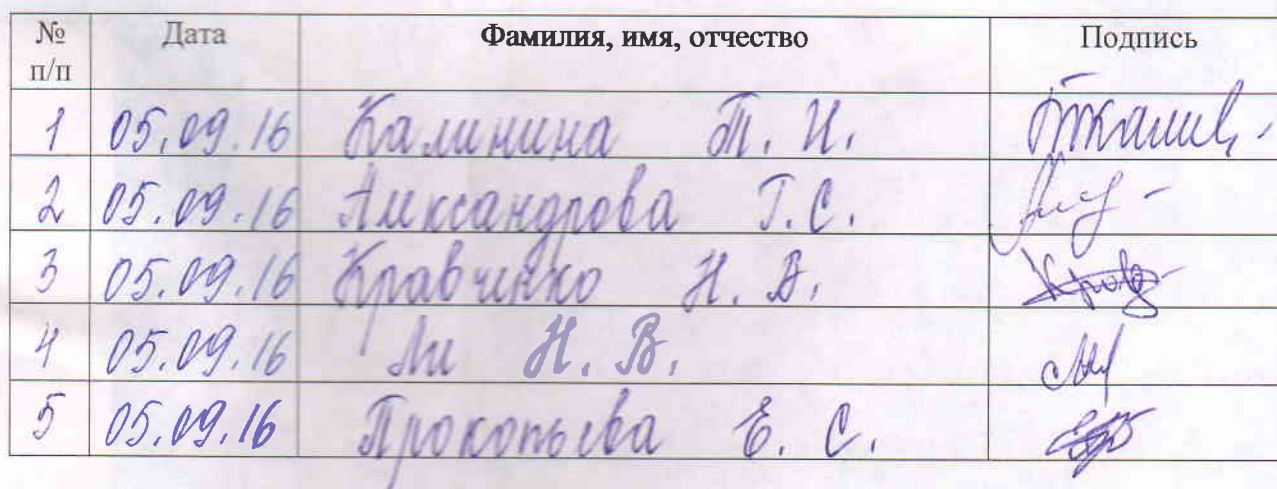 № п/п Дата Фамилия, имя, отчество Подпись
1 05.09.16 Калинина Т. И.
2 05.09.16 Александрова Т.С.
3 05.09.16 Кравченко Н. В.
4 05.09.16 Ли Н. В.
5 05.09.16 Прокопьева Е. С.